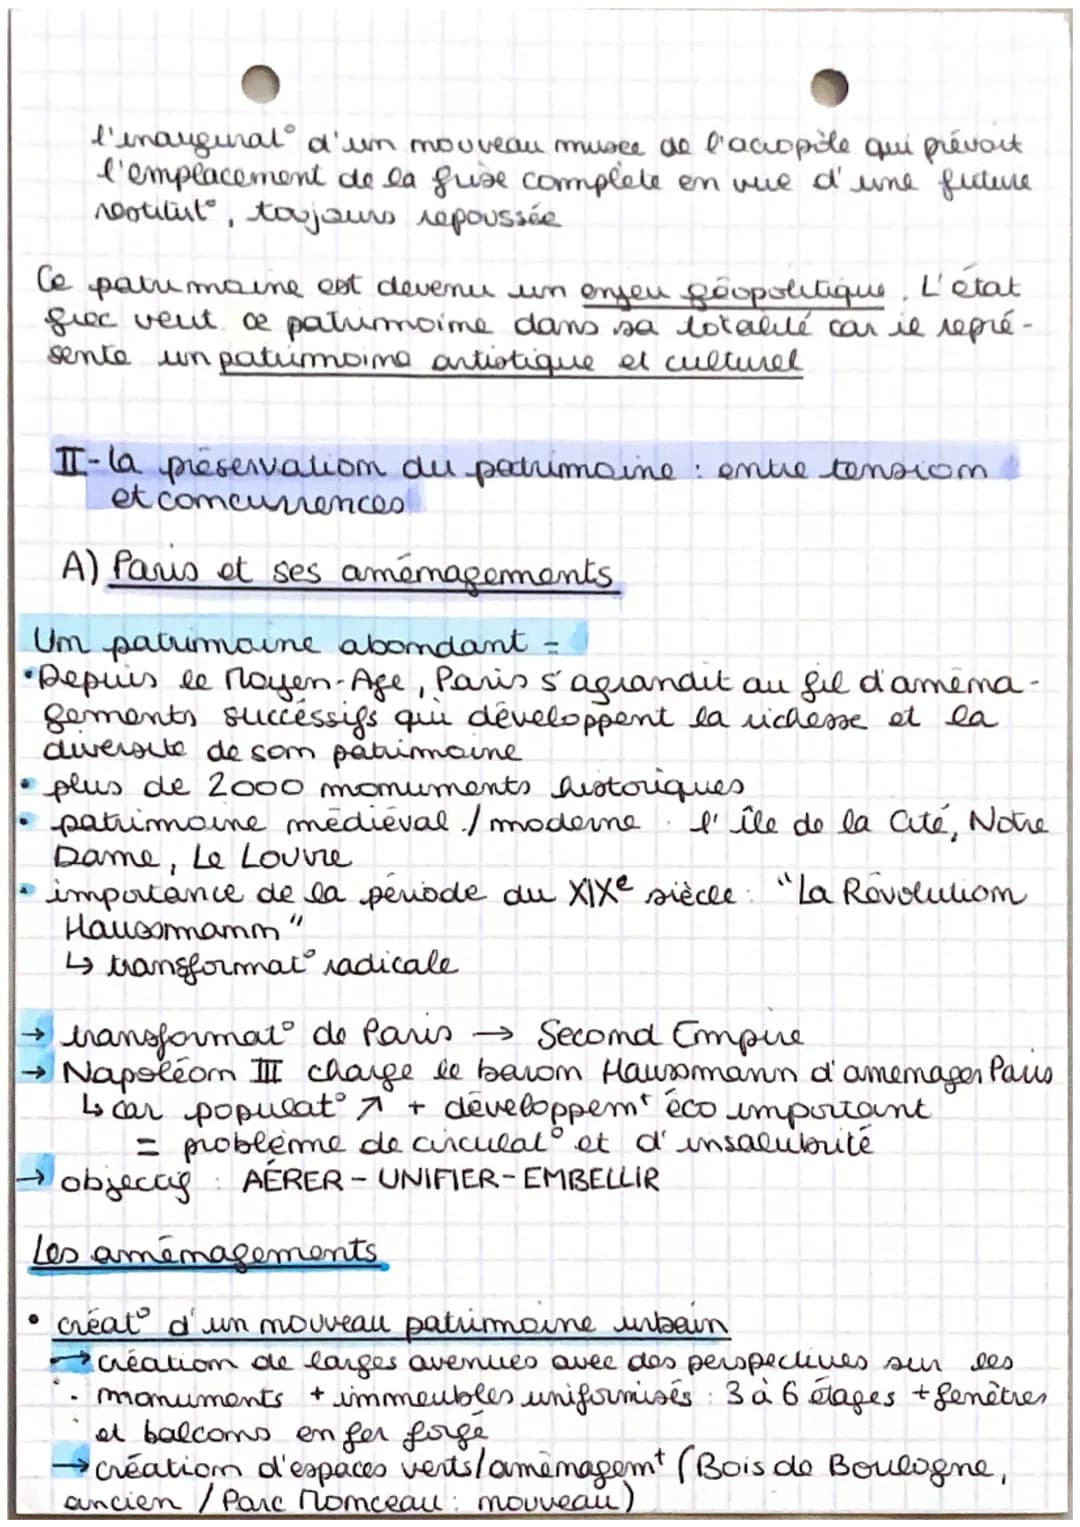 l'inaugurat° d'un nouveau musée de l'acropole qui prévoit
l'emplacement de la frise complète en vue d'une future
restitut°, toujours repoussée
Ce patrimoine est devenu un enjeu géopolitique. L'état
grec veut ce patrimoine dans sa totalité car il repré-
sente un patrimoine artistique et culturel
II-la préservation du patrimoine : entre tension
et concurrences
A) Paris et ses aménagements
Un patrimoine abondant =
•Depuis le Moyen-Age, Paris s'agrandit au fil d'aména-
gements succéssifs qui développent la richesse et la
diversite de son patrimoine
• plus de 2000 monuments historiques
• patrimoine médiéval / moderne : l'île de la Cité, Notre
Dame, Le Louvre
• importance de la période du XIXe siècle : "La Révolution
Haussmann"
↳ transformat° radicale
→ transformat° de Paris → Second Empire
→ Napoléon III charge le baron Haussmann d'amenager Paris
↳ car populat° ↗ + développemt éco important
= problème de circulat° et d'insalubrité
→ objectif : AÉRER - UNIFIER - EMBELLIR
Les aménagements
• créat° d'un nouveau patrimoine urbain
→ création de larges avenues avec des perspectives sur les
monuments + immeubles uniformisés : 3 à 6 étages + fenêtres
et balcons en fer forgé
→ création d'espaces verts/aménagemt (Bois de Boulogne,
ancien / Parc Monceau : nouveau)